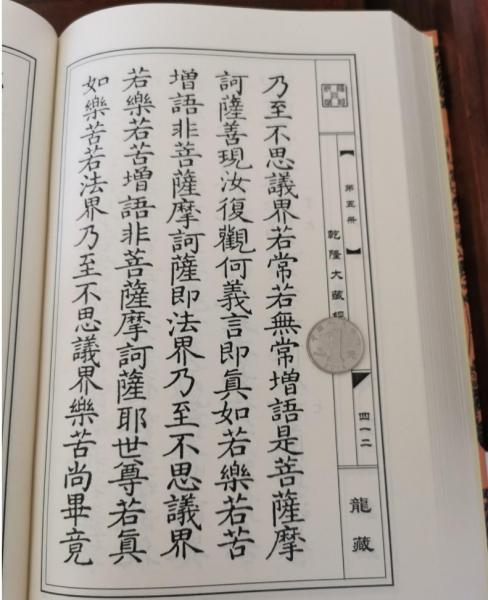 第五册
乾隆大藏經
四一二
龍藏
乃至不思議界若常若無常增語是菩薩摩
訶薩善現汝復觀何義言即眞如若樂若苦
增語非菩薩摩訶薩即法界乃至不思議界
若樂若苦增語非菩薩摩訶薩耶世尊若眞
如樂苦若法界乃至不思議界樂苦尚畢竟